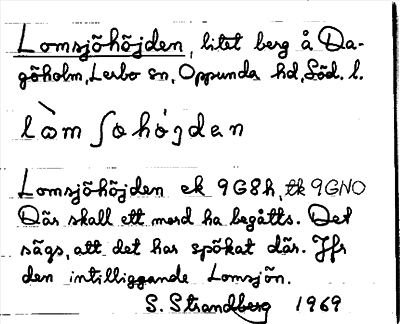 Lomsjöhöjden, litet berg å Da-
göholm, Lerbo sn, Oppunda hd, Söd. l.
lòm ʃøhó̗jden
Lomsjöhöjden ek 9G8h, tk 9GNO
Där skall ett mord ha begåtts. Det
sägs, att det har spökat där. Jfr
den intilliggande Lomsjön.
S. Strandberg 1969